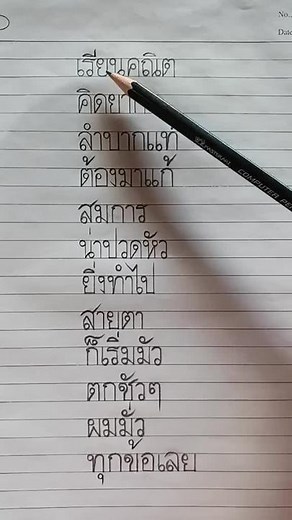 No..
Date
เรียนคณิต
คิดยาก
ลำบากแท้
ต้องมาแก้
สมการ
น่าปวดหัว
ยิ่งทำไป
สายตา
ก็เริ่มมัว
ตกชัวๆ
ผมมั่ว
ทุกข้อเลย
COMPUTER